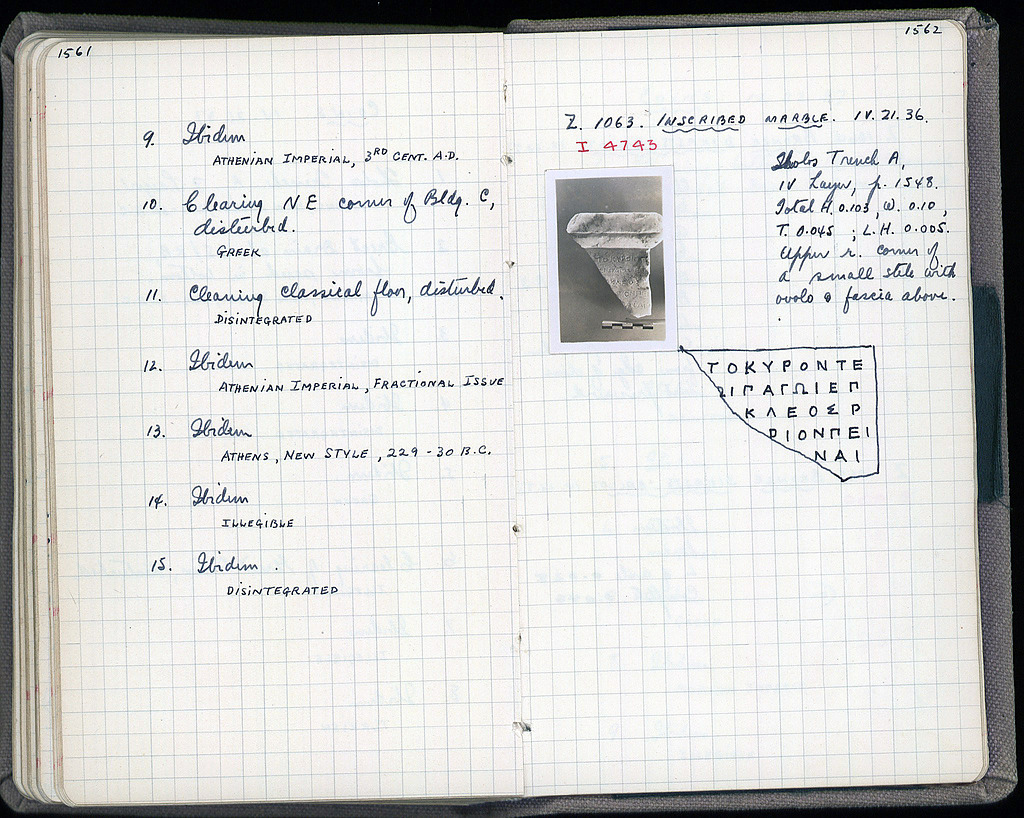 1561
9. Ibidem
ATHENIAN IMPERIAL, 3RD CENT. A.D.
10. Clearing NE corner of Bldg. C,
disturbed.
GREEK
11. Cleaning classical floor, disturbed.
DISINTEGRATED
12. Ibidem
ATHENIAN IMPERIAL, FRACTIONAL ISSUE
13. Ibidem
ATHENS, NEW STYLE, 229-30 B.C.
14. Ibidem
ILLEGIBLE
15. Ibidem.
DISINTEGRATED
1562
Z. 1063. INSCRIBED MARBLE. IV. 21. 36.
I 4743
Tholos Trench A,
IV Layer, p. 1548.
Total H. 0.103, W. 0.10,
T. 0.045 ; L.H. 0.005.
Upper r. corner of
a small stele with
ovolo & fascia above.
ΤΟΚΥΡΟΝΤΕ
ΙΓΑΓΩΙΕΠ
ΚΛΕΟΣΡ
ΡΙΟΝΠΕΙ
ΝΑΙ